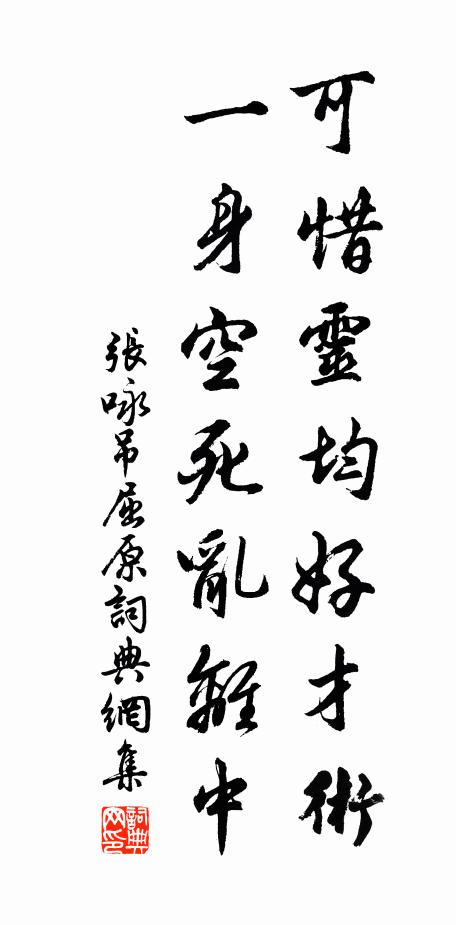 可惜靈均好才術
一身空死亂離中
張咏吊屈原詞典網集
詞典网印